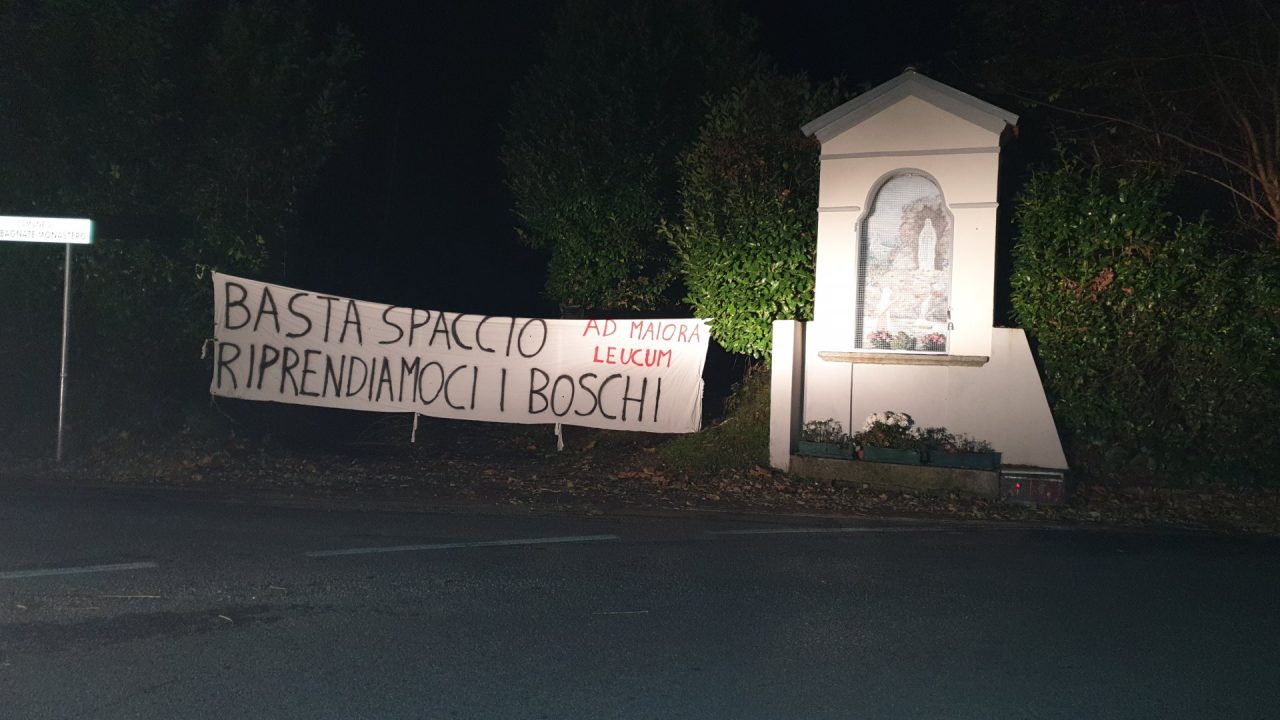 COMUNE DI
BAGNATE MONASTERO
BASTA SPACCIO
RIPRENDIAMOCI I BOSCHI
AD MAIORA
LEUCUM